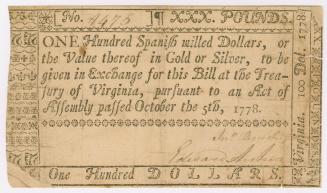 No. 1¶ XXX. POUNDS.
ONE Hundred Spaniſh milled Dollars, or
the Value thereof in Gold or Silver, to be
given in Exchange for this Bill at the Trea-
ſury of Virginia, purſuant to an Act of
Aſſembly paſſed October the 5th, 1778.
One Hundred DOLLARS.
Virginia. 100 Dol. 1778.